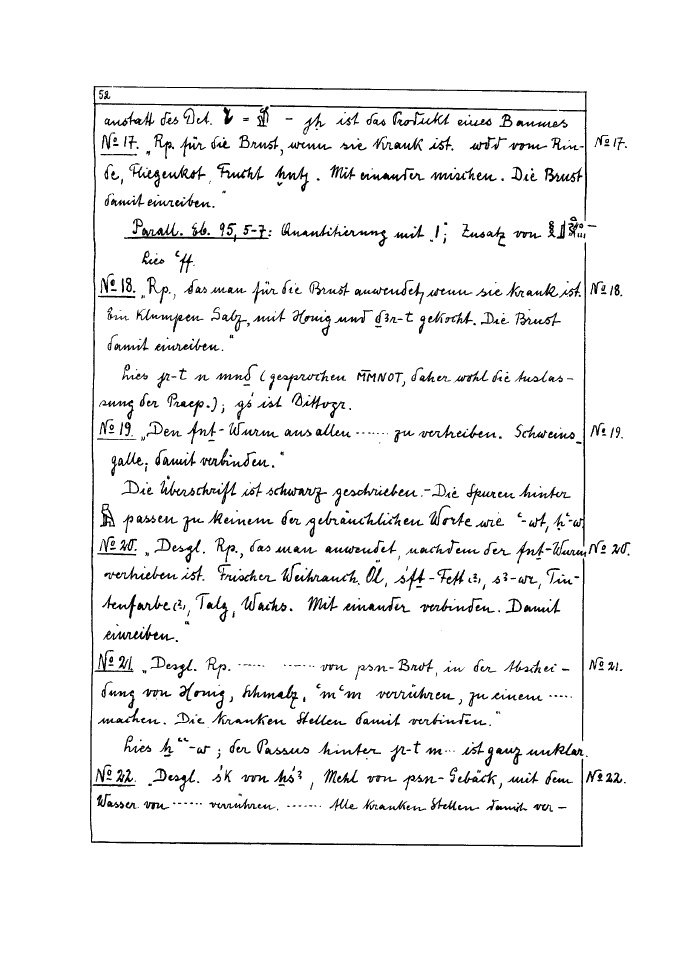 52
anstatt des Det. = – jh ist das Produkt eines Baumes
No 17. „Rp. für die Brust, wenn sie krank ist. wdd vom Rin- No 17.
de, Fliegenkot, Frucht ḫntj. Mit einander mischen. Die Brust
damit einreiben."
Parall. Eb. 95, 5-7: Quantitierung mit „I"; Zusatz von –
Lies ꜥff.
No 18. „Rp., das man für die Brust anwendet, wenn sie krank ist. No 18.
Ein Klumpen Salz, mit Honig und ḏꜣr-t gekocht. Die Brust
damit einreiben."
Lies jr-t n mnḏ (gesprochen M̄MNOT, daher wohl die Auslas-
sung der Praep.); gś ist Dittogr.
No 19. „Den fnṯ-Wurm aus allen ...... zu vertreiben. Schweins- No 19.
galle; damit verbinden."
Die Überschrift ist schwarz geschrieben. – Die Spuren hinter
passen zu keinem der gebräuchlichen Worte wie ꜥ-wt, ḥꜥ-w.
No 20. „Desgl. Rp., das man anwendet, nachdem der fnṯ-Wurm No 20.
vertrieben ist. Frischer Weihrauch. Öl, śfṯ-Fett (?), sꜣ-wr, Tin-
tenfarbe (?), Talg, Wachs. Mit einander verbinden. Damit
einreiben."
No 21. „Desgl. Rp. ...... ...... von psn-Brot, in der Abschei- No 21.
dung von Honig, Schmalz, ꜥmꜥm verrühren, zu einem .....
machen. Die kranken Stellen damit verbinden."
Lies ; der Passus hinter jr-t m... ist ganz unklar.
No 22. „Desgl. śk von ḥśꜣ, Mehl von psn-Gebäck, mit dem No 22.
Wasser von ...... verrühren. ....... Alle kranken Stellen damit ver-